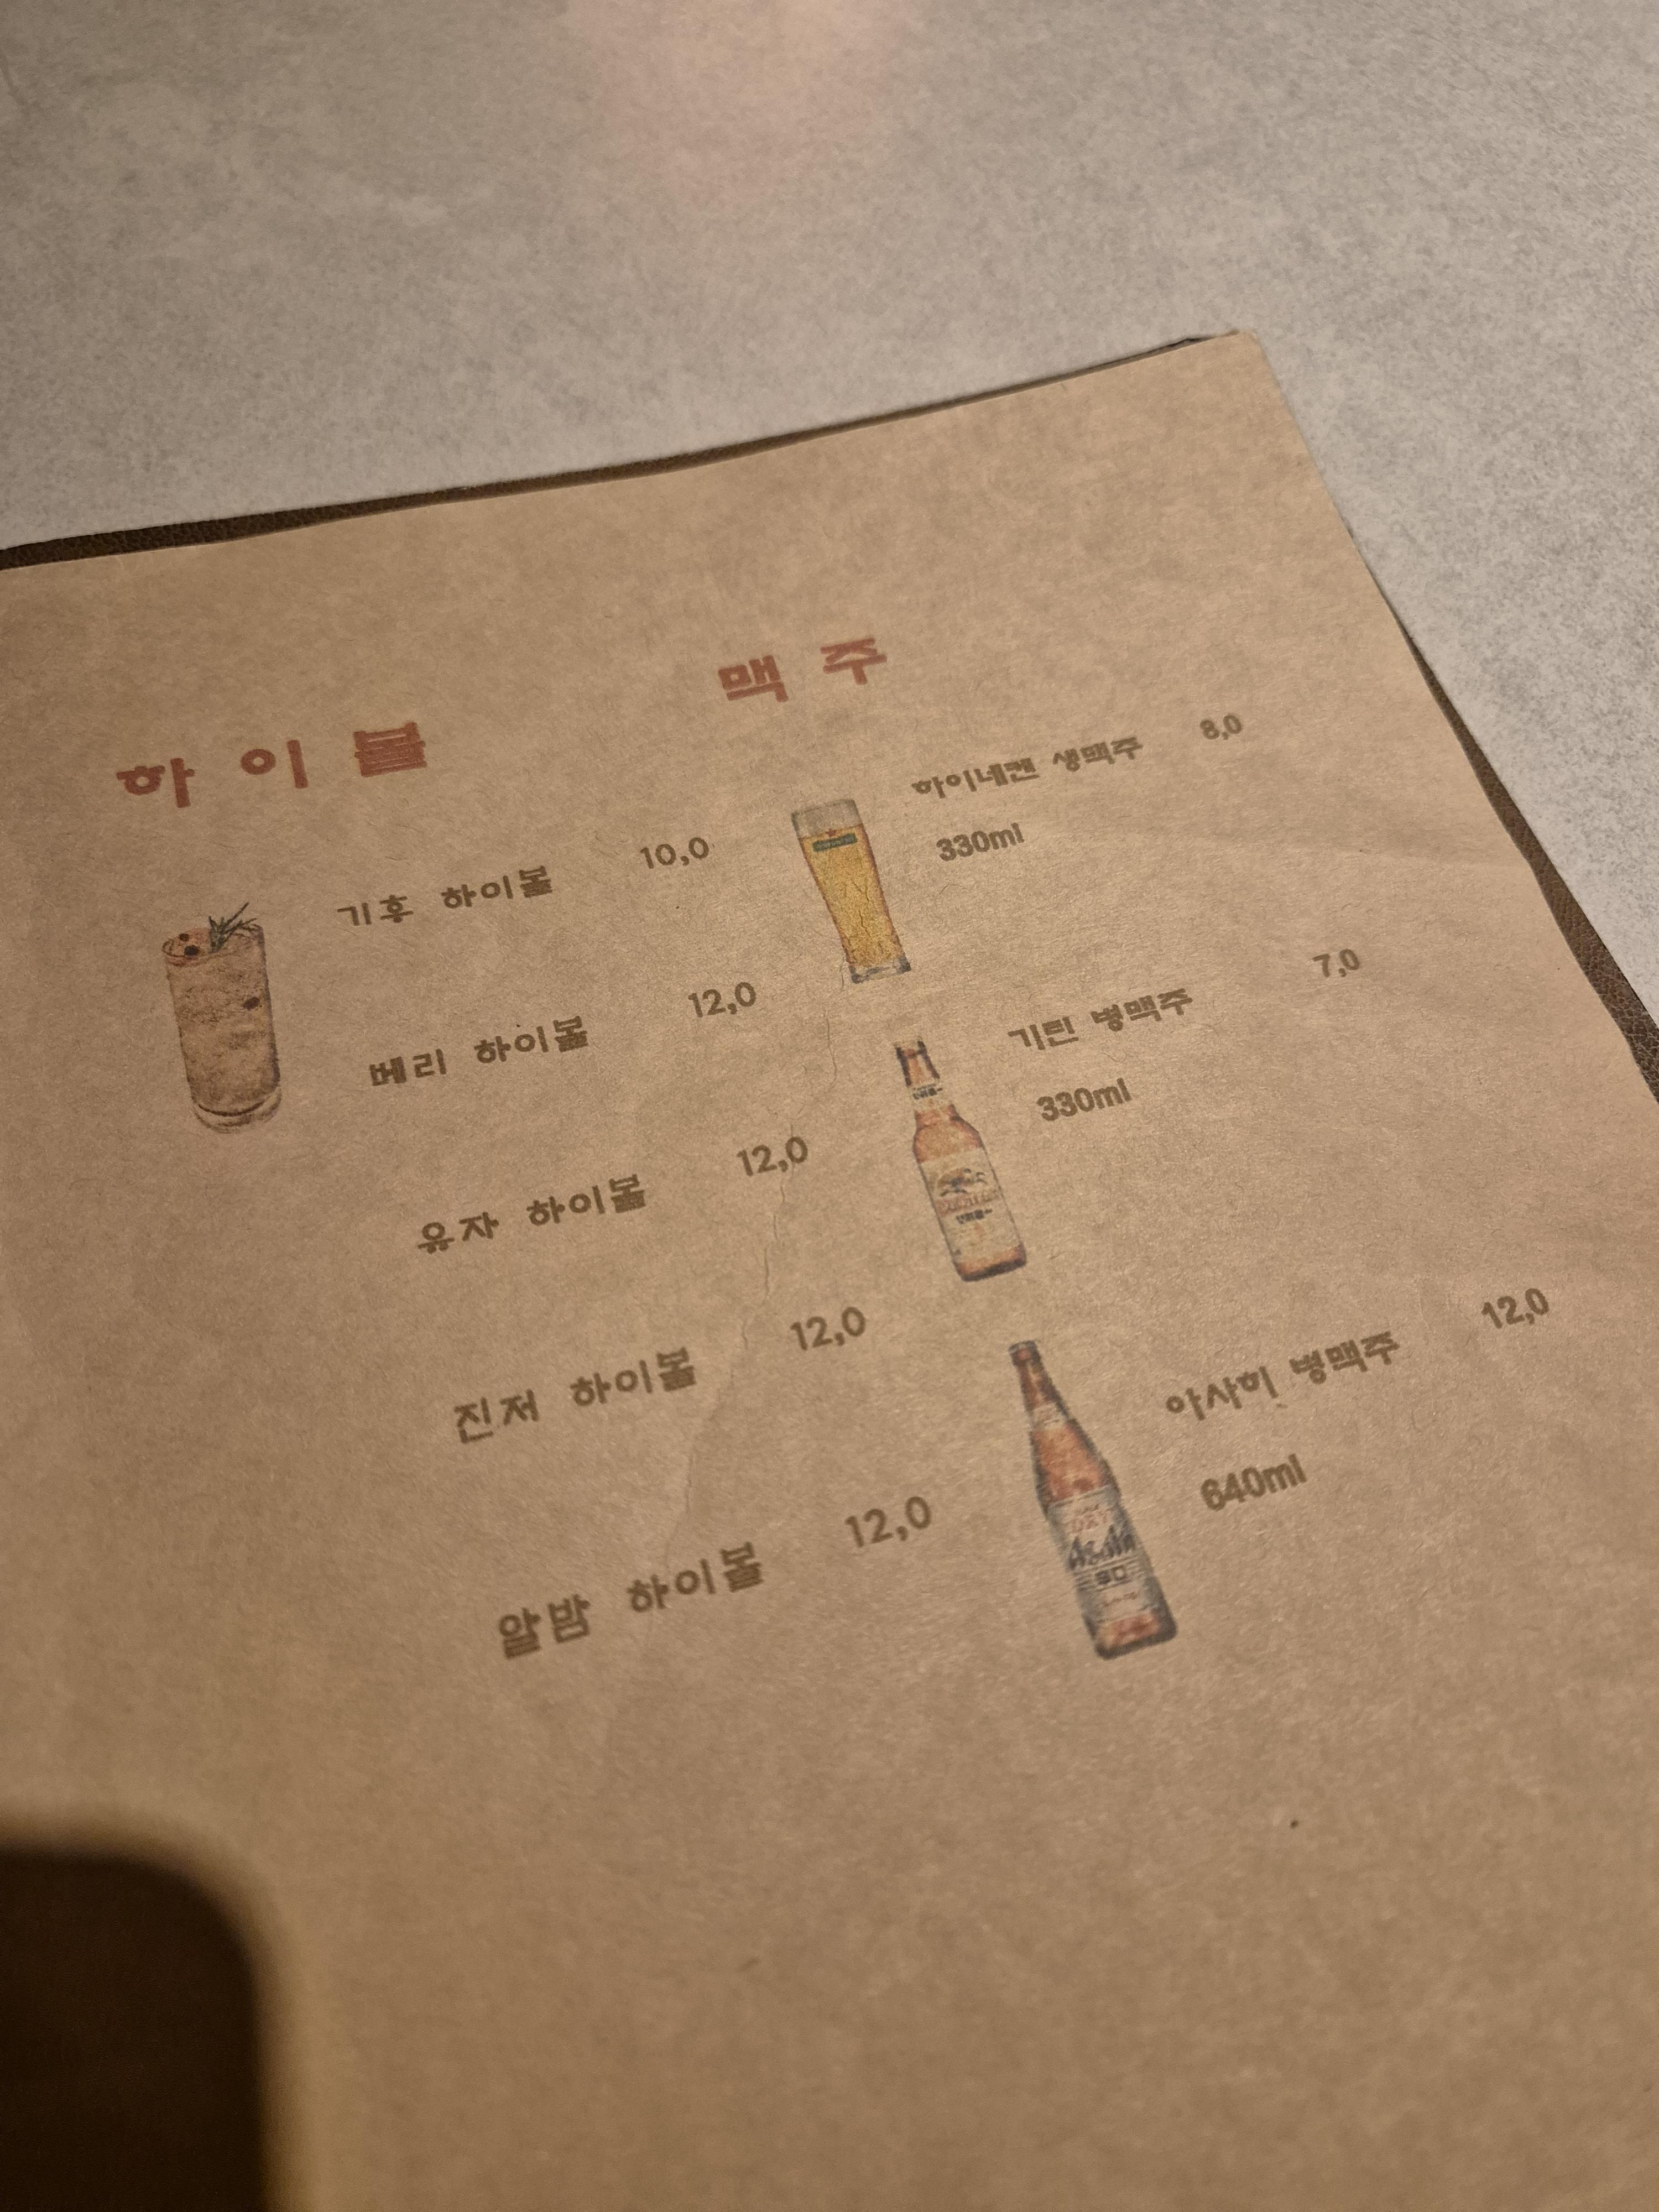 하이볼
기후 하이볼 10,0
베리 하이볼 12,0
유자 하이볼 12,0
진저 하이볼 12,0
알밤 하이볼 12,0
맥주
하이네켄 생맥주 8,0
330ml
기린 병맥주 7,0
330ml
아사히 병맥주 12,0
640ml
DRY
Asahi